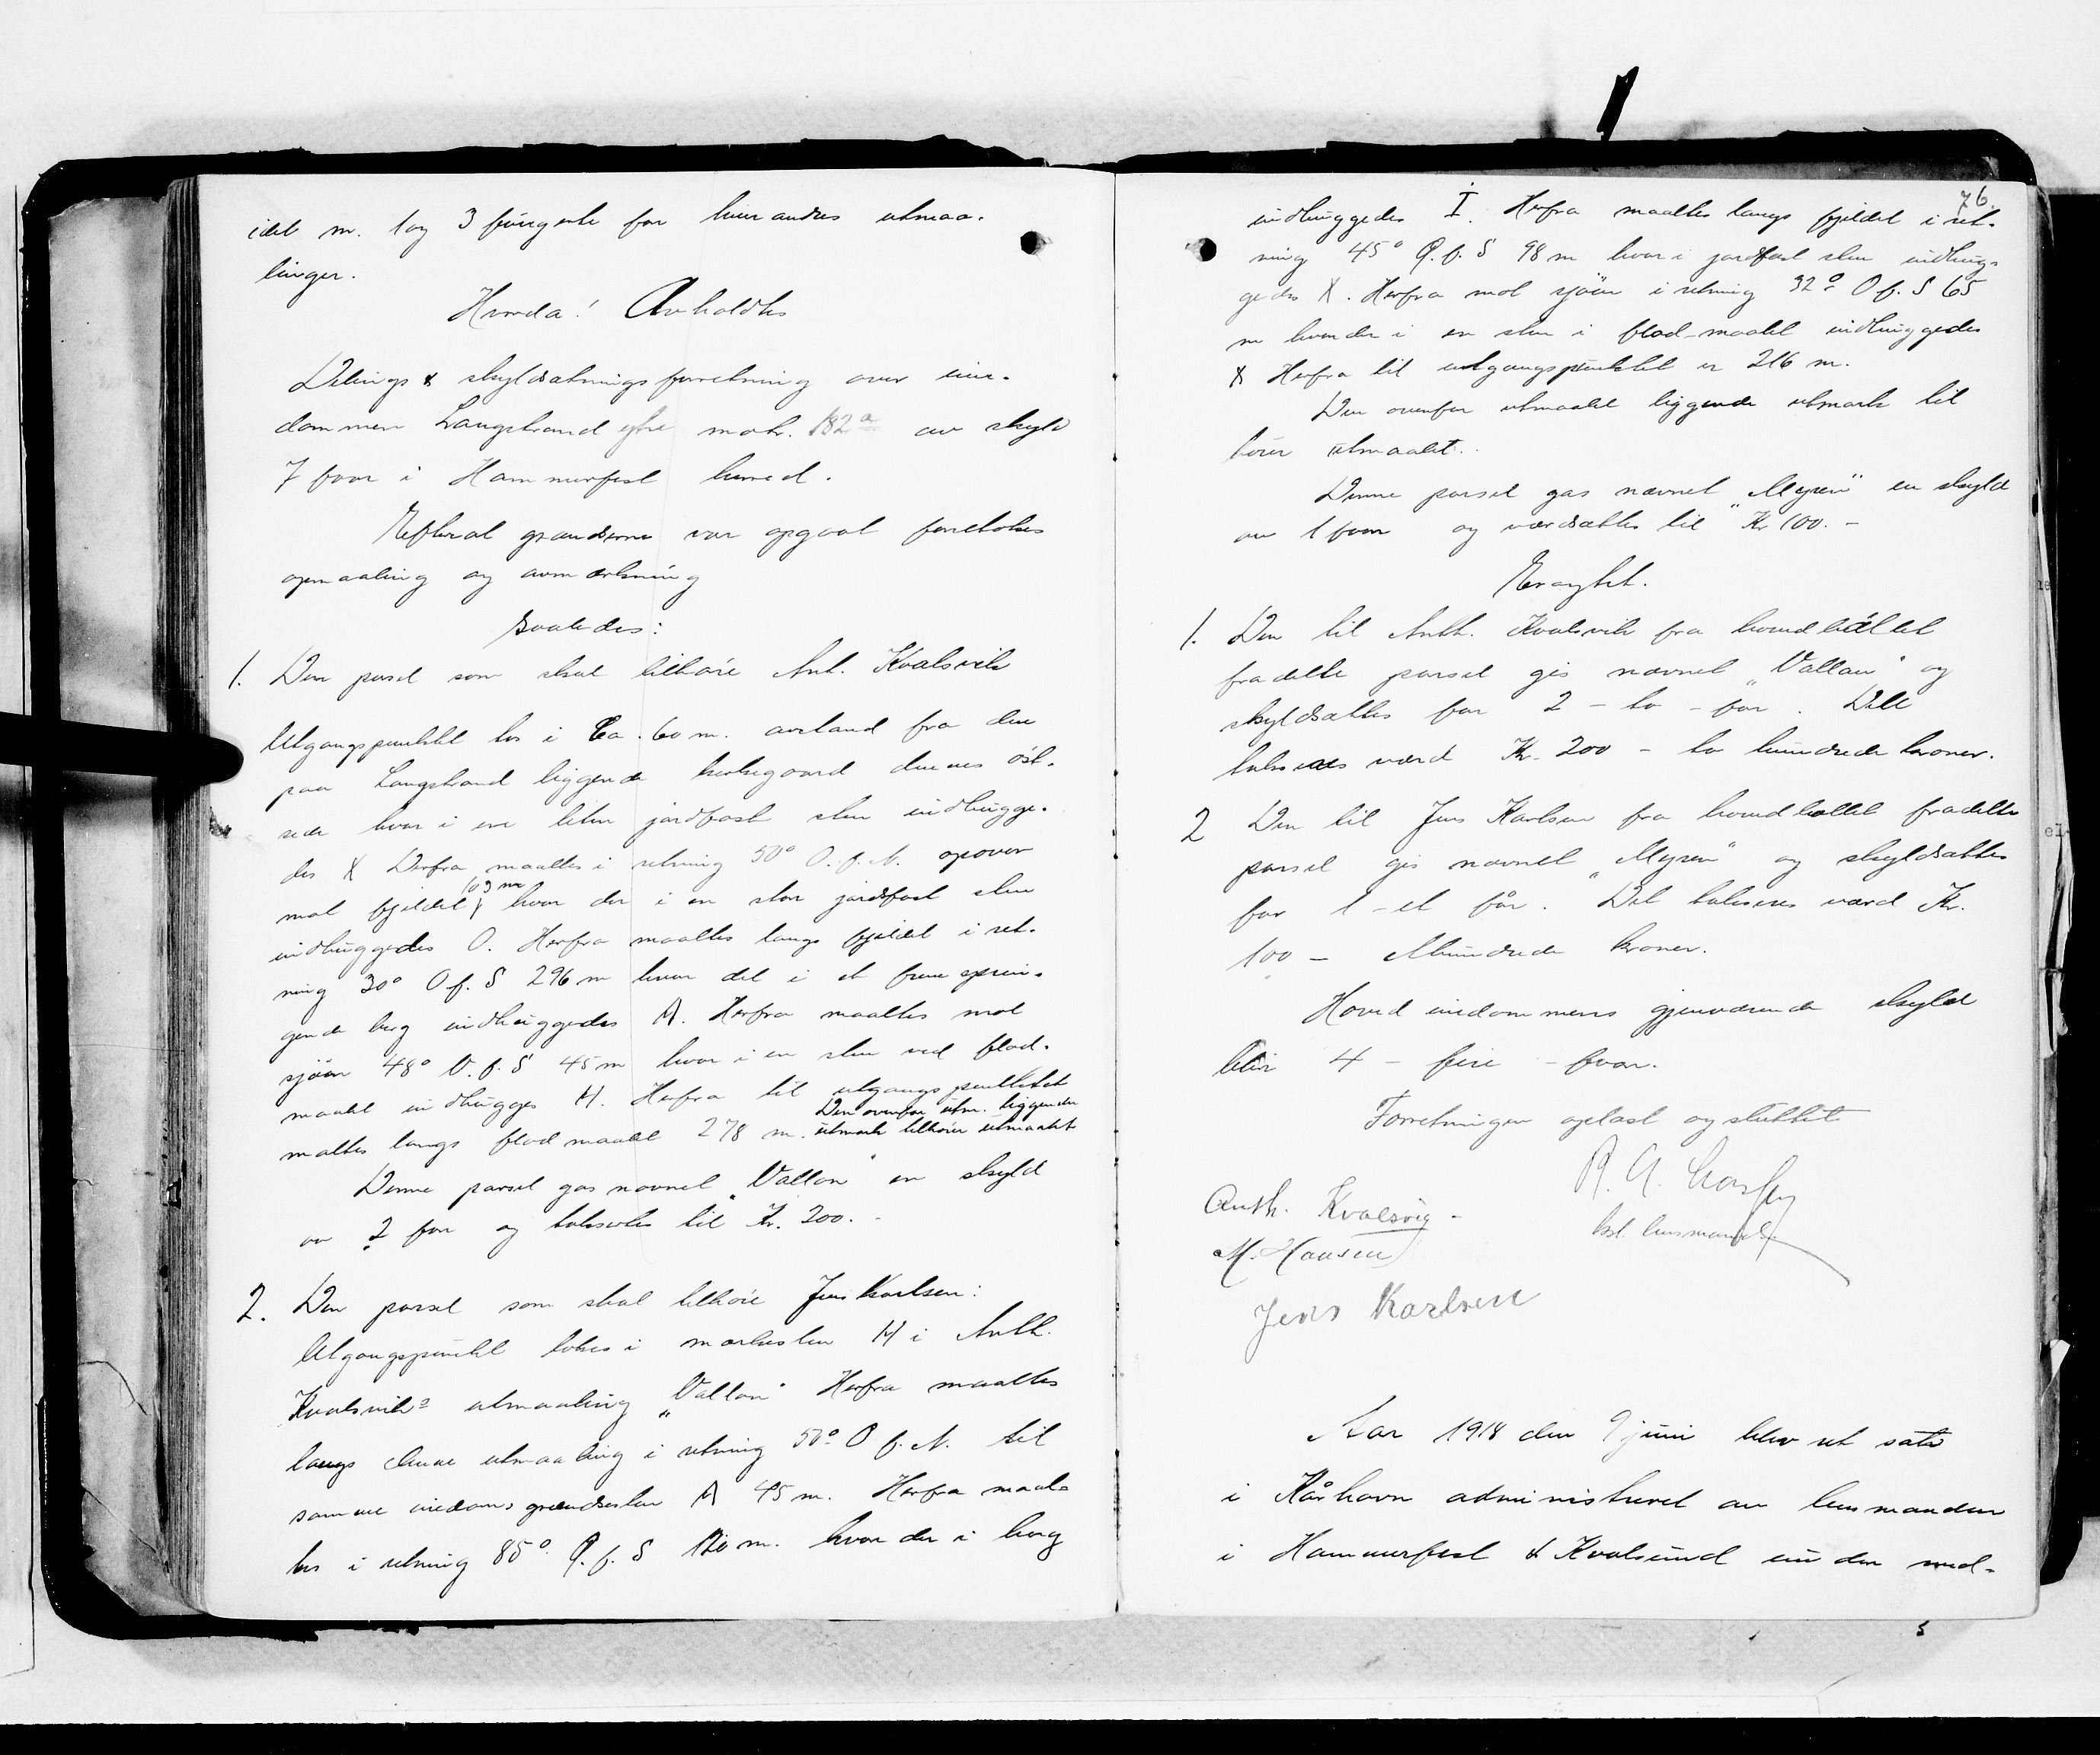 idet nr. 1 og 3 fungerte for hverandres utmaa-
linger.
Hvorda: Avholdtes
Delings & skyldsætningsforretning over eien-
dommen Langstrand ytre matr. 182a av skyld
7 foar i Hammerfest herred.
Efterat grændserne var opgaat foretokes
opmaaling og avmerkning
saaledes:
1. Den parsel som skal tilhöre Ant. Kvalsvik
Utgangspunktet tos i Ca. 60 m. avstand fra den
paa Langstrand liggende kirkegaard dennes öst-
side hvor i en liten jordfast sten indhugge-
des X Derfra maaltes i retning 50° O. f. N. opover
mot fjeldet 103 m hvor der i en stor jordfast sten
indhuggedes O. Herfra maaltes langs fjeldet i ret-
ning 30° O f. S 296 m hvor det i et frem sprin-
gende berg indhuggedes A. Herfra maaltes mot
sjöen 48° V. f. S 45 m hvor i en sten ved flod-
maalet indhugges H. Herfra til utgangspunktet
maltes langs flod maalet 278 m. Den ovenfor utm. liggende
utmark tilhörer utmaalet
Denne parsel gas navnet "Vollan" en skyld
av 2 foar og taksertes til Kr. 200.-
2. Den parsel som skal tilhöre Jens Karlsen:
Utgangspunkt tokes i merkesten H i Anth.
Kvalsviks utmaaling "Vollan" Herfra maaltes
langs denne utmaaling i retning 50° O f. N. til
samme eiendoms grændsesten A 45 m. Herfra maal-
tes i retning 85° O. f. S 120 m. hvor der i berg
76.
indhuggedes I. Herfra maaltes langs fjeldet i ret-
ning 45° O. f. S 98 m hvor i jordfast sten indhug-
gedes X. Herfra mot sjöen i retning 32° O f. S 65
m hvor der i en sten i flod-maalet indhuggedes
X Herfra til utgangspunktet er 216 m.
Den ovenfor utmaalet liggende utmark til
hörer utmaalet.
Denne parsel gas navnet "Myren" en skyld
av 1 foar og værdsættes til Kr 100.-
Eragtet.
1. Den til Anth. Kvalsvik fra hovedbölet
fradelte parsel gis navnet "Vollan" og
skyldsættes for 2 - to - for. Dets
takseres værd Kr. 200 - to hundrede kroner.
2 Den til Jens Karlsen fra hovedbölet fradelte
parsel gis navnet "Myren" og skyldsættes
for 1 - et får. Det takseres værd Kr.
100 - Ethundrede kroner.
Hoved eiendommens gjenværende skyld
blir 4 - fire - foar.
Forretningen oplæst og sluttet
Anth. Kvalsvig -
M. Hansen
Jens Karlsen
Aar 1918 den 9 juni blev ret satt
i Kårhavn administreret av lensmanden
i Hammerfest & Kvalsund under med-